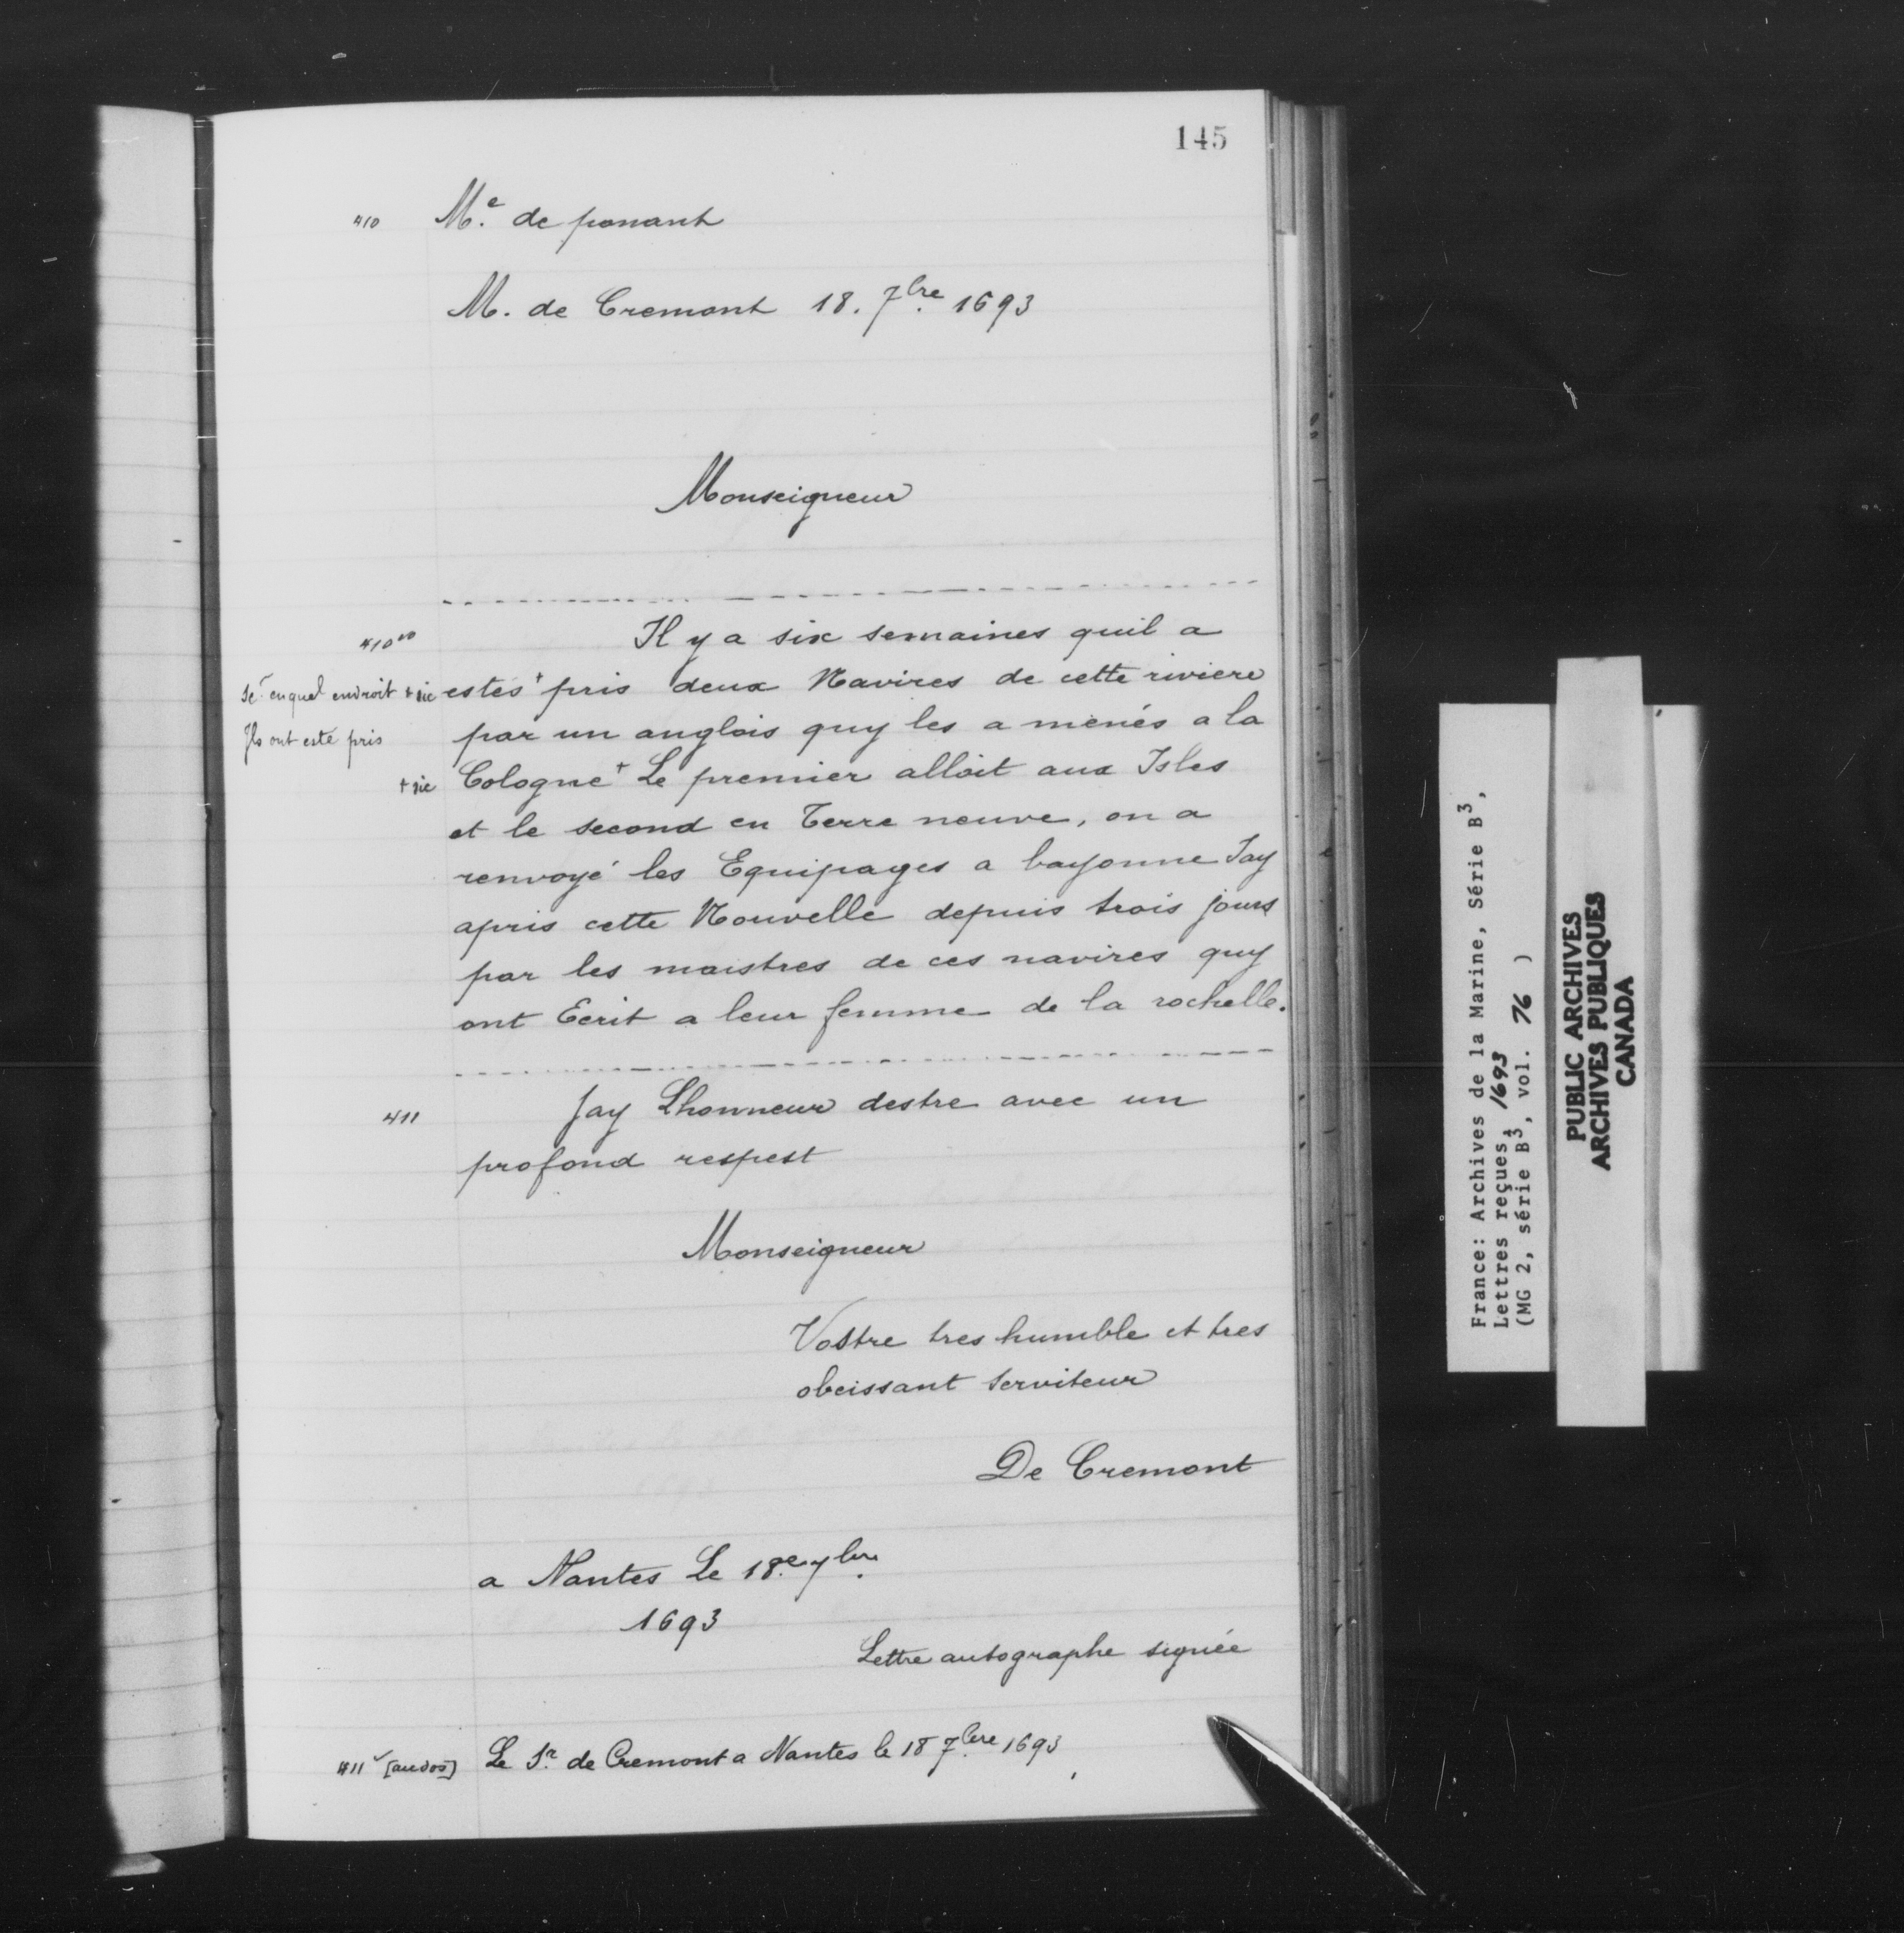 145
410 M.e de ponant
M. de Cremont 18. 7bre 1693
Monseigneur
410vo Il y a six semaines quil a
Sc.r en quel endroit + sic estés + pris deux Navires de cette riviere
Ils ont esté pris par un anglois quy les a menés a la
+ sic Cologne + Le premier alloit aux Isles
et le second en Terre neuve, on a
renvoyé les Equipages a bayonne Jay
apris cette Nouvelle depuis trois jours
par les maistres de ces navires quy
ont Ecrit a leur femme de la rochelle.
411 Jay Lhonneur destre avec un
profond respest
Monseigneur
Vostre tres humble et tres
obeissant serviteur
De Cremont
a Nantes Le 18.e 7bre
1693
Lettre autographe signée
411v [au dos] Le Sr. de Cremont a Nantes le 18 7bre 1693
France: Archives de la Marine, Série B3,
Lettres reçues, 1693
(MG 2, série B3, vol. 76 )
PUBLIC ARCHIVES
ARCHIVES PUBLIQUES
CANADA